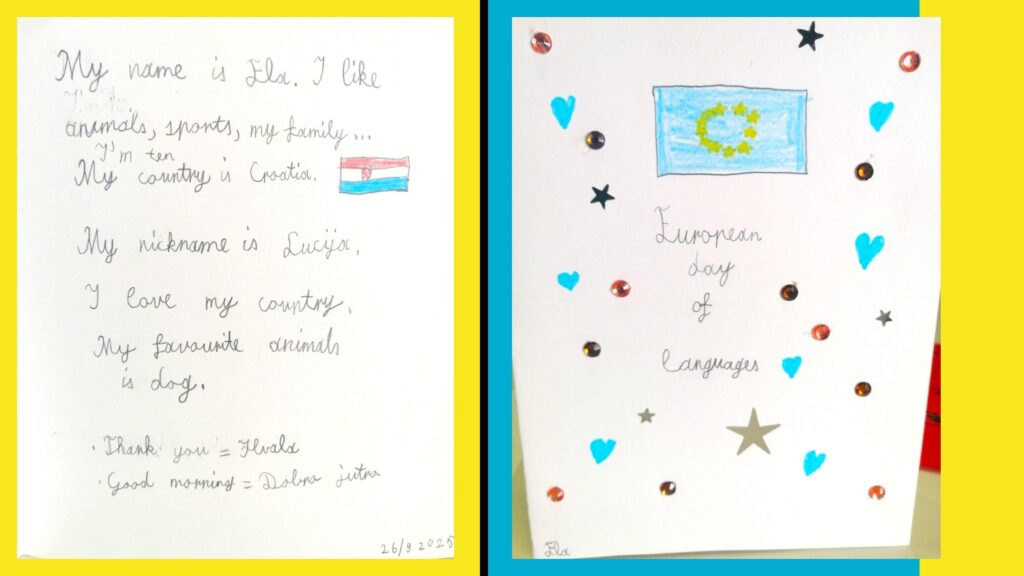 My name is Ela. I like
animals, sports, my family...
I'm ten
My country is Croatia.
My nickname is Lucija.
I love my country.
My favourite animals
is dog.
· Thank you = Hvala
· Good morning = Dobro jutro
26/9 2025
European
day
of
languages
Ela